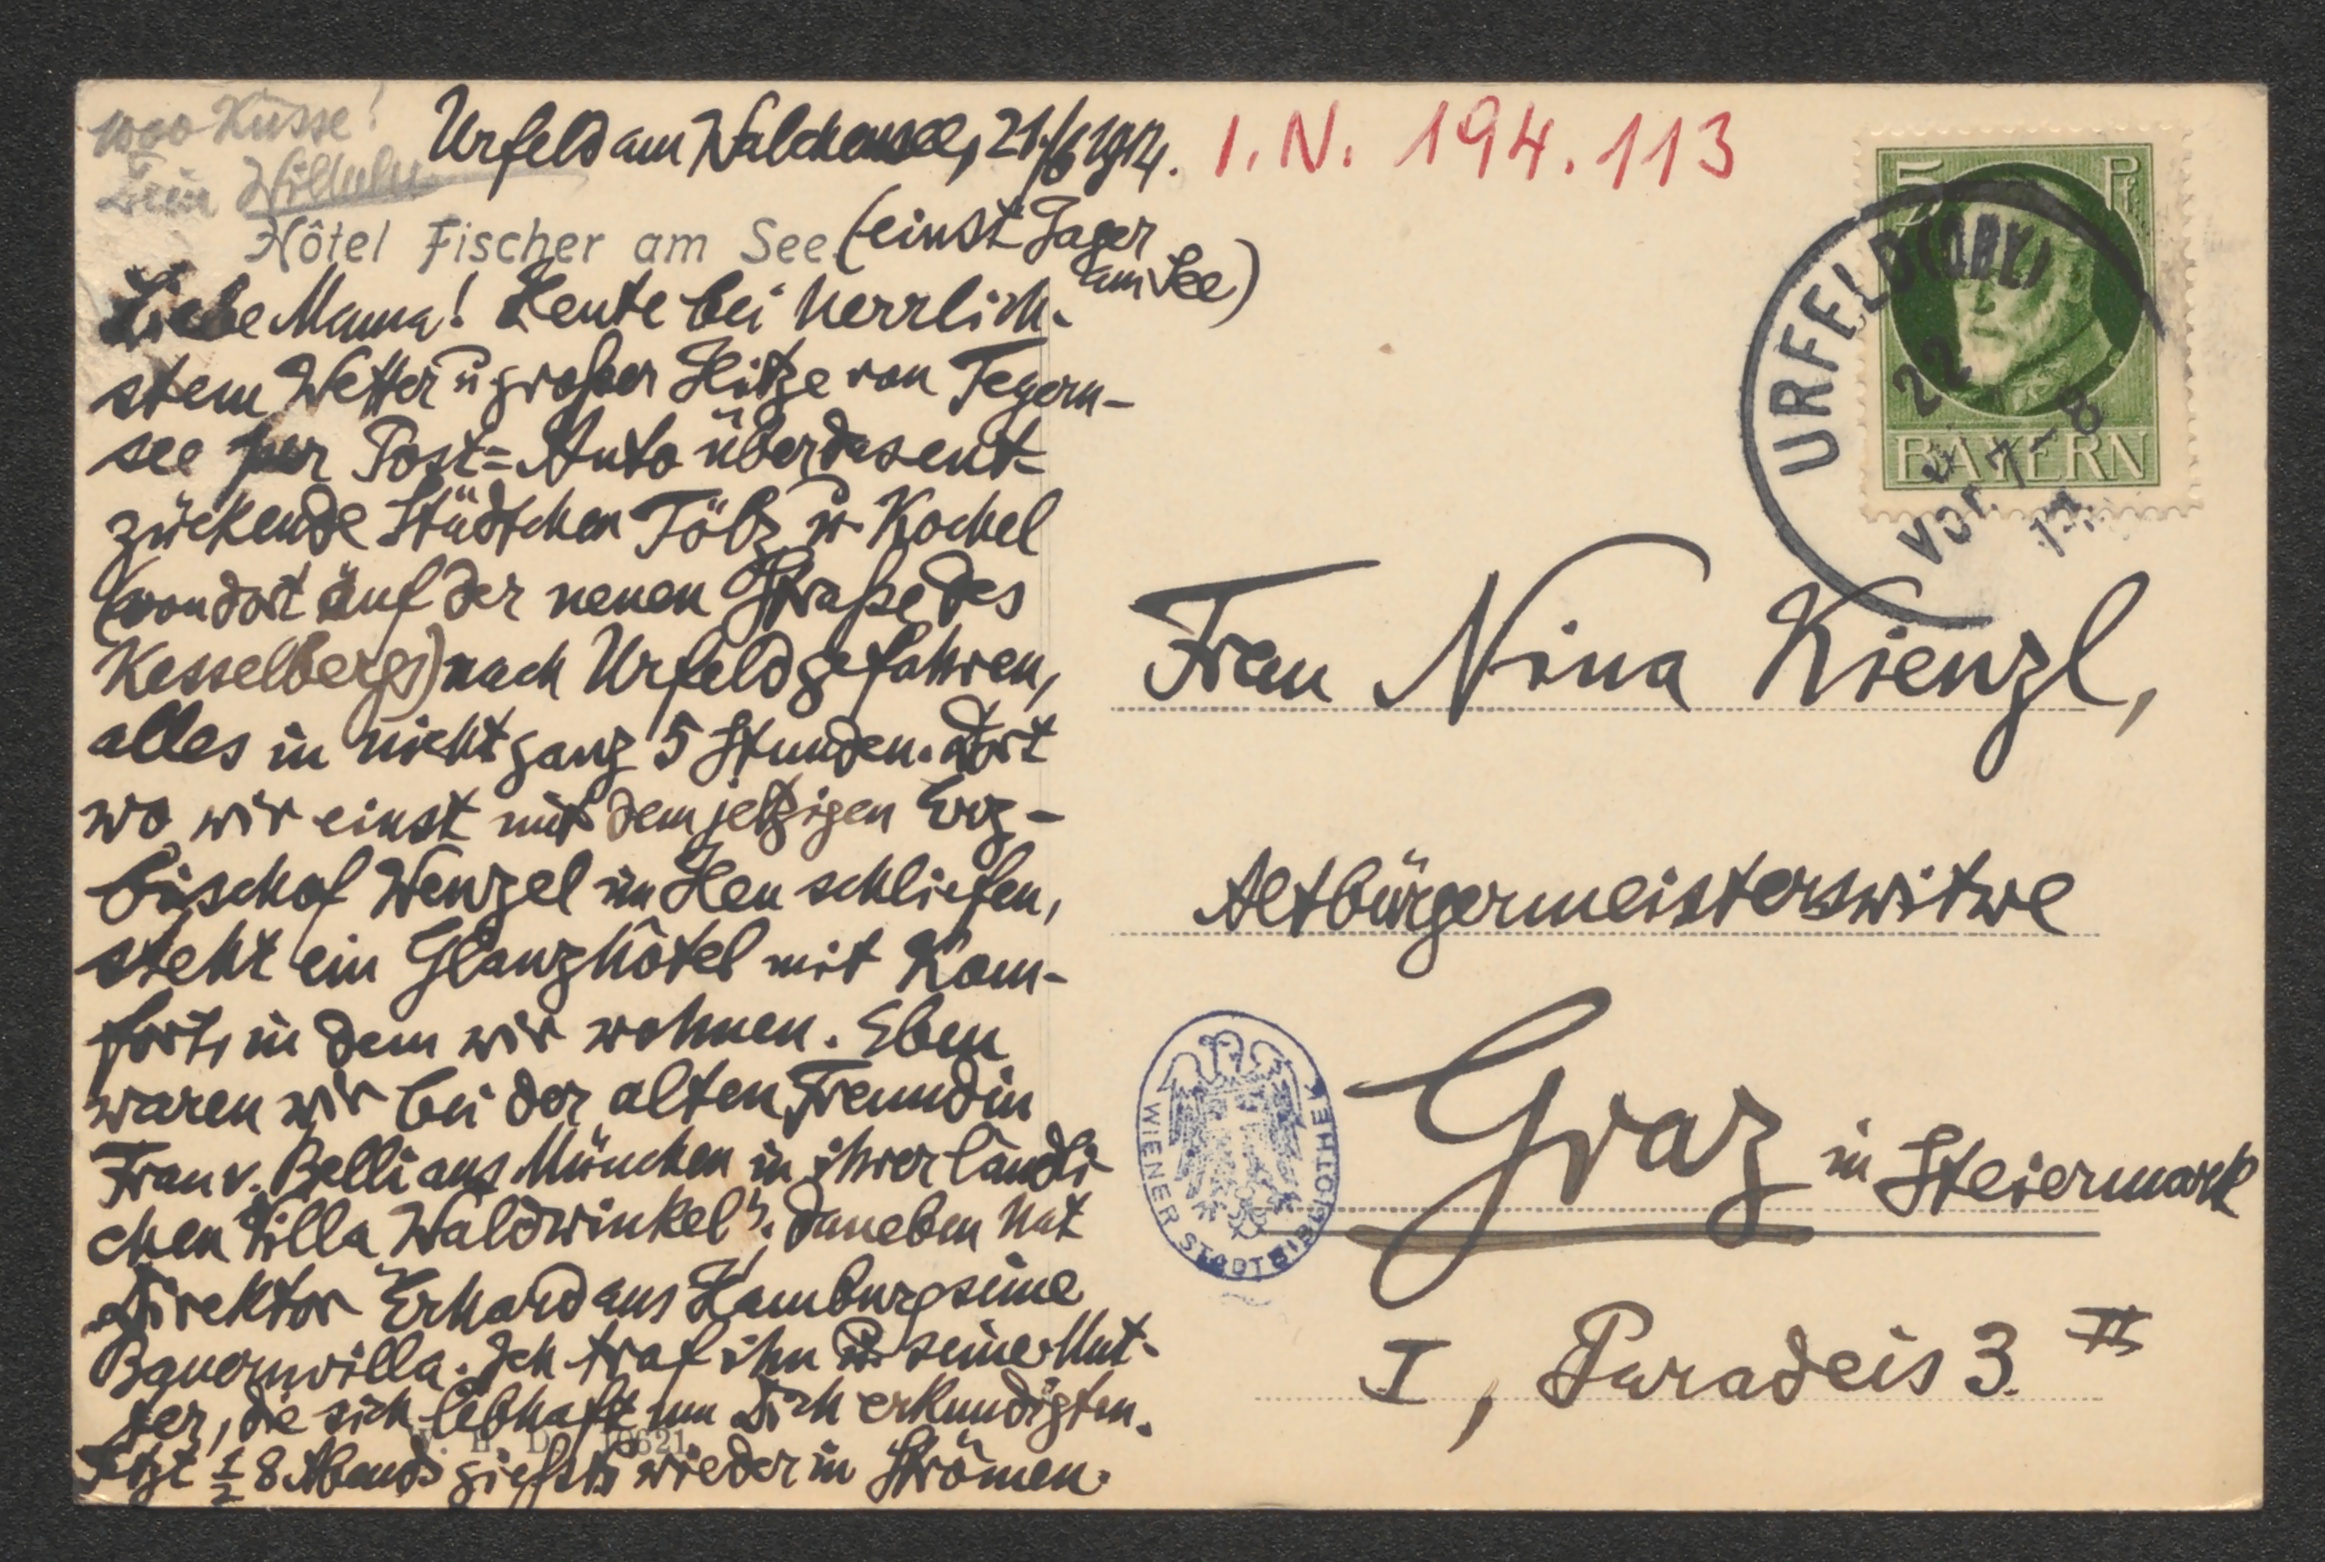 1000 Küsse!
Dein Wilhelm
Urfeld am Walchensee, 21./6 1914.
I.N. 194.113
Hôtel Fischer am See (einst Jager
am See)
Liebe Mama! Heute bei herrlich-
stem Wetter u großer Hitze von Tegern-
see per Post=Auto über das ent-
zückende Städtchen Tölz u. Kochel
(von dort auf der neuen Straße des
Kesselbergs) nach Urfeld gefahren,
alles in nicht ganz 5 Stunden. Dort
wo wir einst mit dem jetzigen Erz-
bischof Wenzel im Heu schliefen,
steht ein Glanzhôtel mit Kom-
fort, in dem wir wohnen. Eben
waren wir bei der alten Freundin
Frau v. Belli aus München in ihrer ländli-
chen Villa „Waldwinkel“; daneben hat
Direktor Erhard aus Hamburg seine
Bauernvilla. Ich traf ihn u. seine Mut-
ter, die sich lebhaft um Dich erkundigten.
Jetzt ½ 8 Abends gießt's wieder in Strömen.
5 Pf.
BAYERN
URFELD (OBY.)
22
Vor. 7-8
14.
Frau Nina Kienzl,
Altbürgermeisterswitwe
Graz in Steiermark
I, Paradeis 3. II
WIENER STADTBIBLIOTHEK